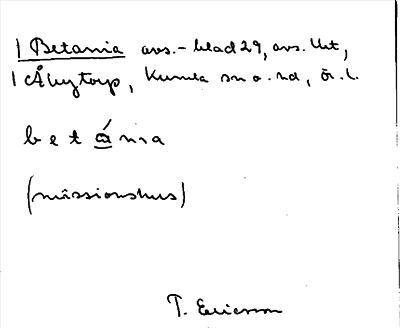 | Betania avs.-blad 29, avs. Ut,
| Åbytorp, Kumla sn o. hd, ör. l.
b e t á n ı a
(missionshus)
T. Ericsson